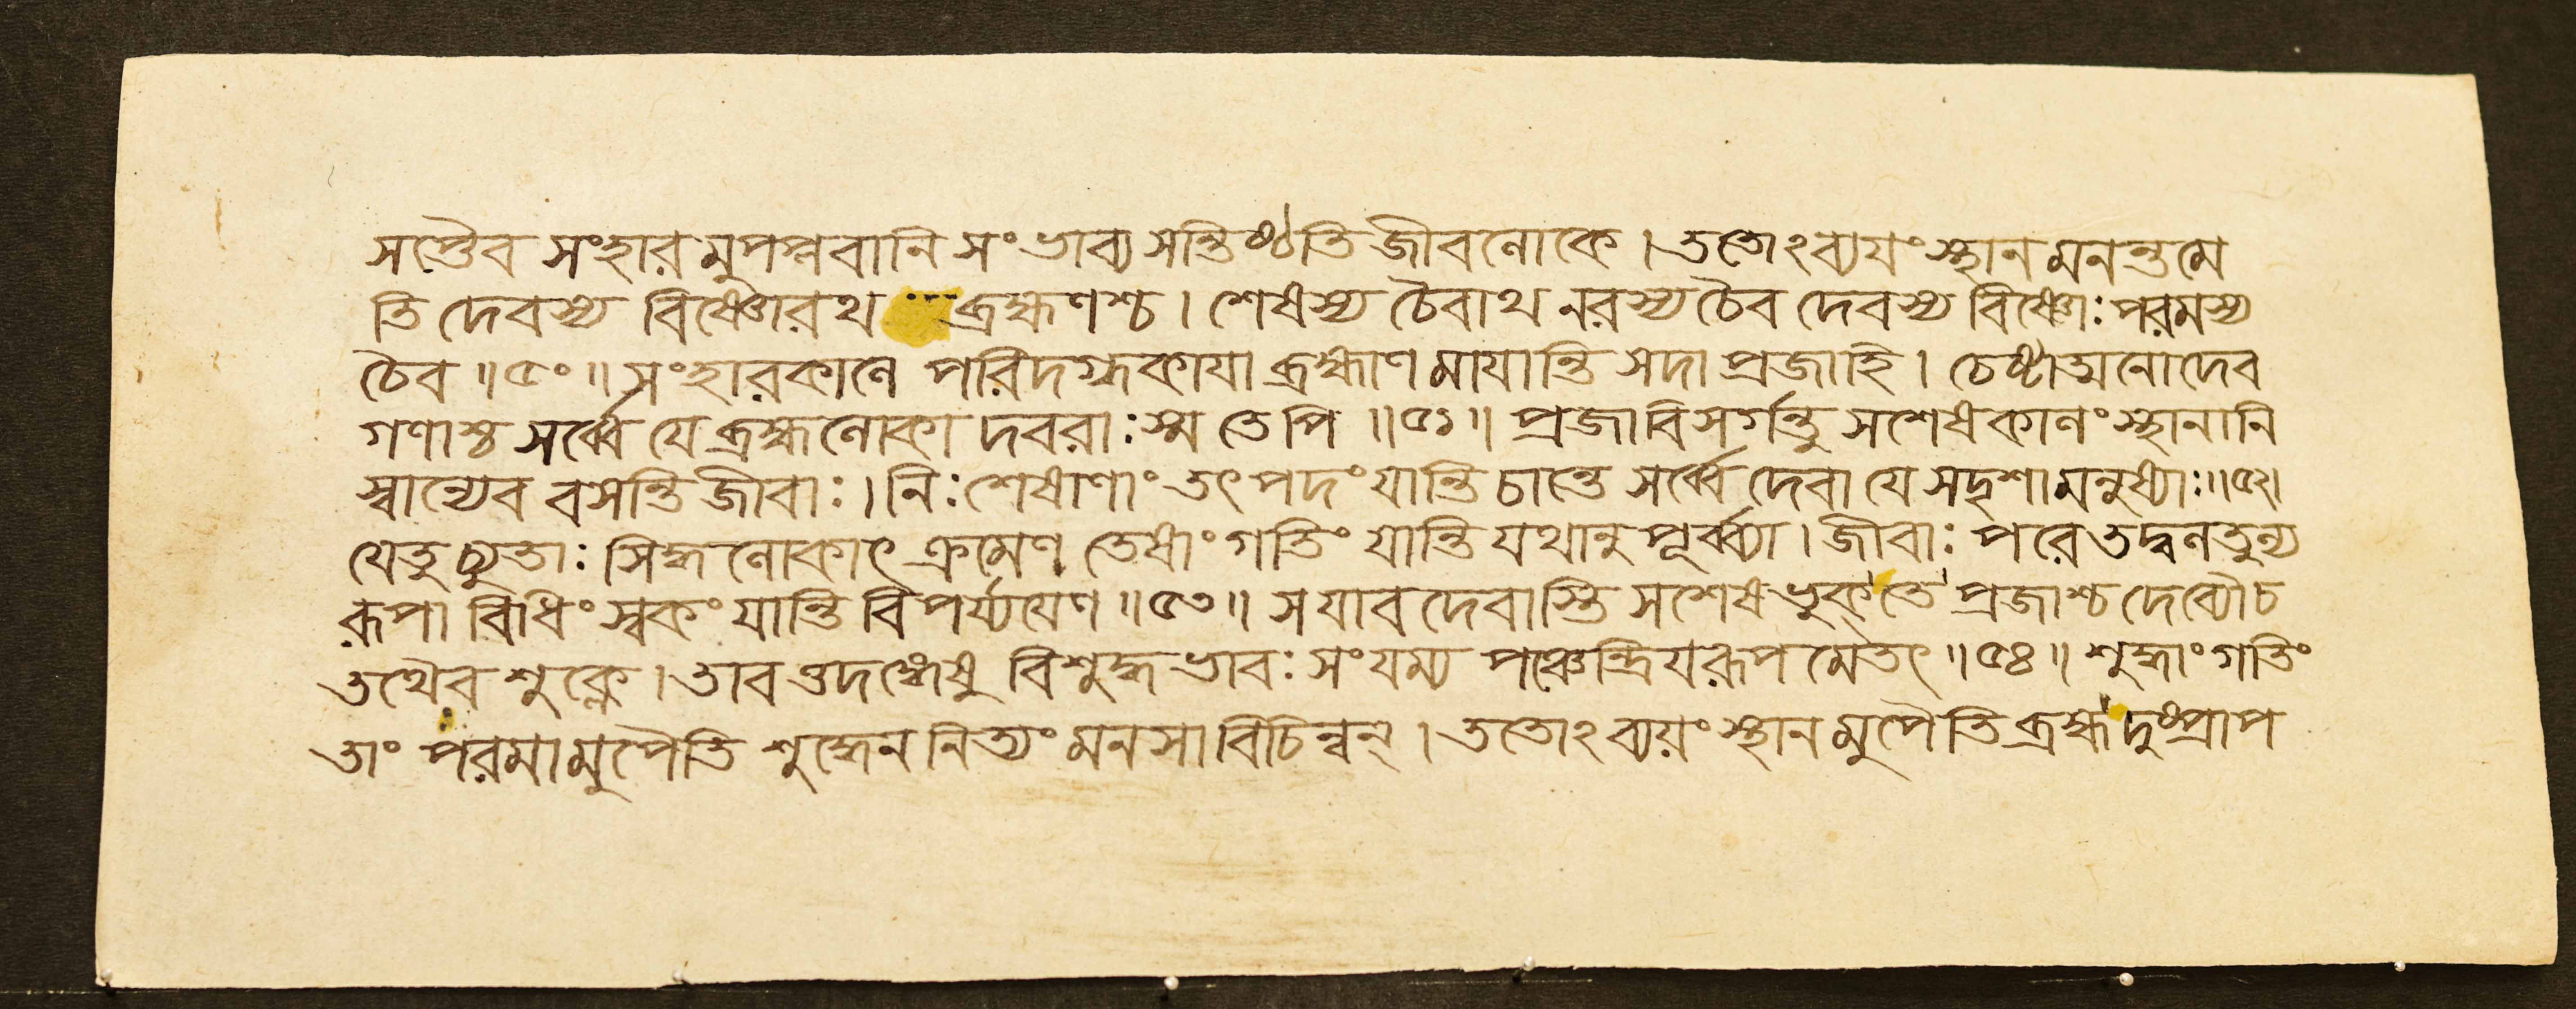 সপ্তৈব সংহারমুপপ্লবানি সংভাব্য সন্তিষ্ঠতি জীবলোকে । ততোঽব্যযংস্থানমনন্তমে
তি দেবস্য বিষ্ণোরথ ব্রহ্মণশ্চ । শেষস্য চৈবাথ নরস্য চৈব দেবস্য বিষ্ণোঃ পরমস্য
চৈব ॥৫০॥ সংহারকালে পরিদগ্ধকাযা ব্রহ্মাণমাযান্তি সদা প্রজাহি । চেষ্টাত্মনোদেব
গণাশ্চ সর্ব্বে যে ব্রহ্মলোকা দবরাঃ স্ম তেপি ॥৫১॥ প্রজাবিসর্গন্তু সশেষকালংস্থানানি
স্বান্যেব বসন্তি জীবাঃ । নিঃশেষাণাং তৎপদং যান্তি চান্তে সর্ব্বে দেবা যে সদৃশা মনুষ্যাঃ ॥৫২।
যেতু চ্যুতাঃ সিদ্ধলোকাৎ ক্রমেণ তেষাং গতিং যান্তি যথানুপূর্ব্ব্যা । জীবাঃ পরে তদ্বলতুল্য
রূপা বিধিং স্বকং যান্তি বিপর্য্যযেণ ॥৫৩॥ স যাবদেবাস্তি সশেষভুক্ তে প্রজাশ্চ দেব্যৌ চ
তথৈব শুক্লে । তাবত্তদঙ্গেষু বিশুদ্ধভাবঃ সংযম্য পঞ্চেন্দ্রিযরূপমেতৎ ॥৫৪॥ শুদ্ধাং গতিং
তাং পরমামুপৈতি শুদ্ধেন নিত্যং মনসা বিচিন্বন্ । ততোঽব্যয়ং স্থানমুপৈতি ব্রহ্ম দুষ্প্রাপ